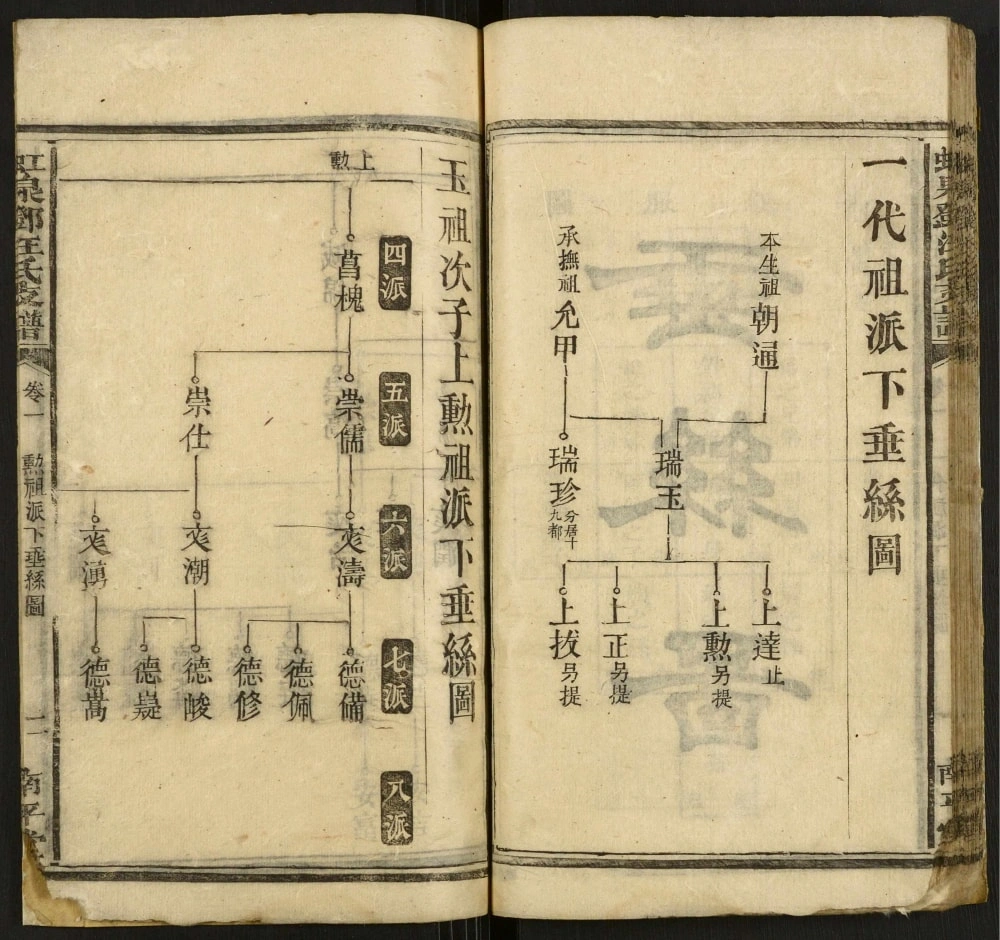 一代祖派下垂絲圖
本生祖朝通
承撫祖允甲
瑞玉
瑞珍分居十九都
上達止
上勲另提
上正另提
上拔另提
玉祖次子上勲祖派下垂絲圖
上勲
四派
五派
六派
七派
八派
菖槐
崇儒
崇仕
文濤
文潮
文湧
德備
德佩
德修
德峻
德嶷
德嵩
卷一
勲祖派下垂絲圖
二